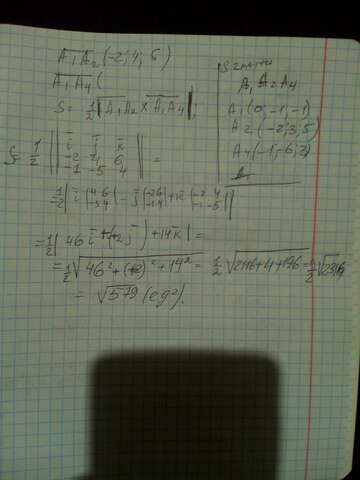 A₁A₂(-2; 4; 6)
A₁A₄(
S = 1/2 |A₁A₂ × A₁A₄|;
S = 1/2 || i j k
-2 4 6
-1 -5 4 || =
= 1/2 | i |4 6
-5 4| - j |-2 6
-1 4| + k |-2 4
-1 -5| |
= 1/2 | 46 i + 2 j + 14 k | =
= 1/2 √46² + (+2)² + 14² = 1/2 √2116+4+196 = 1/2 √2316
= √579 (eg²).
A₁ A₂ A₄
A₁(0; -1; -1)
A₂(-2; 3; 5)
A₄(-1; -6; 3)